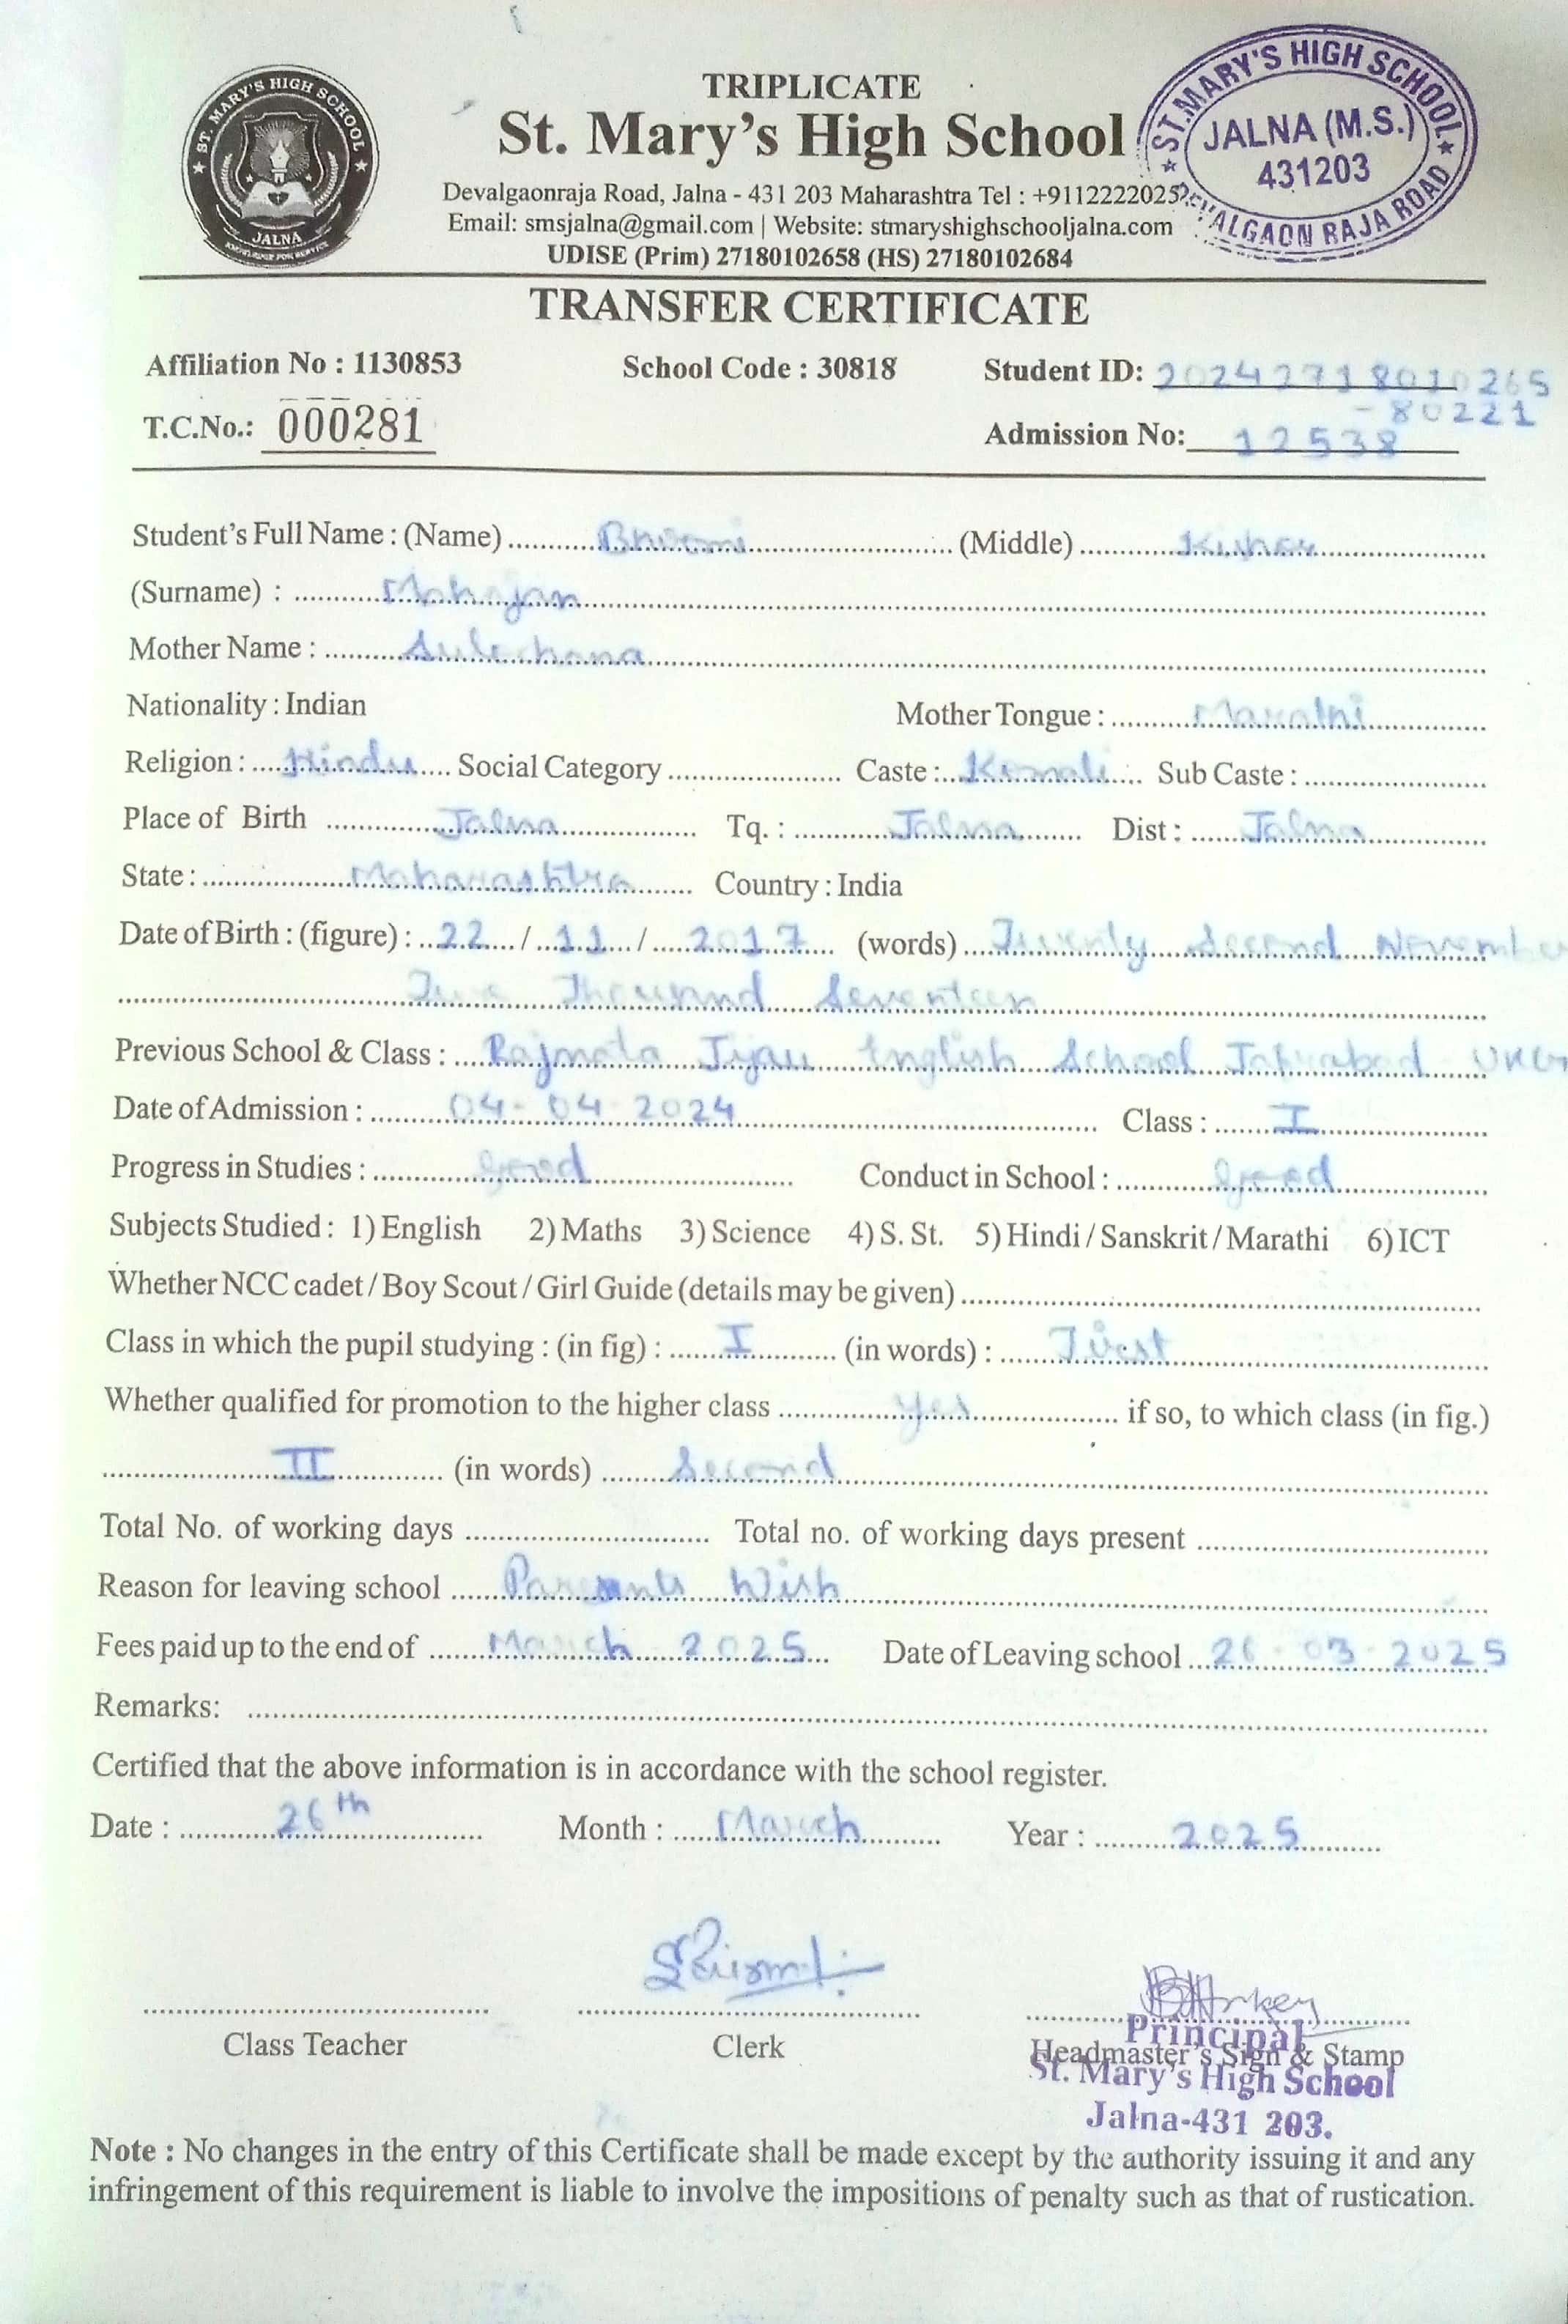 TRIPLICATE
St. Mary's High School
Devalgaonraja Road, Jalna - 431 203 Maharashtra Tel : +9112222025
Email: smsjalna@gmail.com | Website: stmaryshighschooljalna.com
UDISE (Prim) 27180102658 (HS) 27180102684
ST. MARY'S HIGH SCHOOL
JALNA
KNOWLEDGE FOR SERVICE
ST. MARY'S HIGH SCHOOL
JALNA (M.S.)
431203
ALGAON RAJA ROAD
TRANSFER CERTIFICATE
Affiliation No : 1130853 School Code : 30818 Student ID: 20242718010265
-80221
T.C.No.: 000281 Admission No: 12538
Student's Full Name : (Name) Bhoomi (Middle) Kishor
(Surname) : Mahajan
Mother Name : Sulochana
Nationality : Indian Mother Tongue : Marathi
Religion : Hindu Social Category Caste : Komati Sub Caste :
Place of Birth Jalna Tq. : Jalna Dist : Jalna
State : Maharashtra Country : India
Date of Birth : (figure) : 22 / 11 / 2017 (words) Twenty Second November
Two Thousand Seventeen
Previous School & Class : Rajmata Jijau English School Jafrabad UKG
Date of Admission : 04-04-2024 Class : I
Progress in Studies : Good Conduct in School : Good
Subjects Studied : 1) English 2) Maths 3) Science 4) S. St. 5) Hindi / Sanskrit / Marathi 6) ICT
Whether NCC cadet / Boy Scout / Girl Guide (details may be given)
Class in which the pupil studying : (in fig) : I (in words) : First
Whether qualified for promotion to the higher class yes if so, to which class (in fig.)
II (in words) Second
Total No. of working days Total no. of working days present
Reason for leaving school Parents Wish
Fees paid up to the end of March 2025 Date of Leaving school 26-03-2025
Remarks:
Certified that the above information is in accordance with the school register.
Date : 26th Month : March Year : 2025
Class Teacher Clerk Headmaster's Sign & Stamp
Principal
St. Mary's High School
Jalna-431 203.
Note : No changes in the entry of this Certificate shall be made except by the authority issuing it and any
infringement of this requirement is liable to involve the impositions of penalty such as that of rustication.